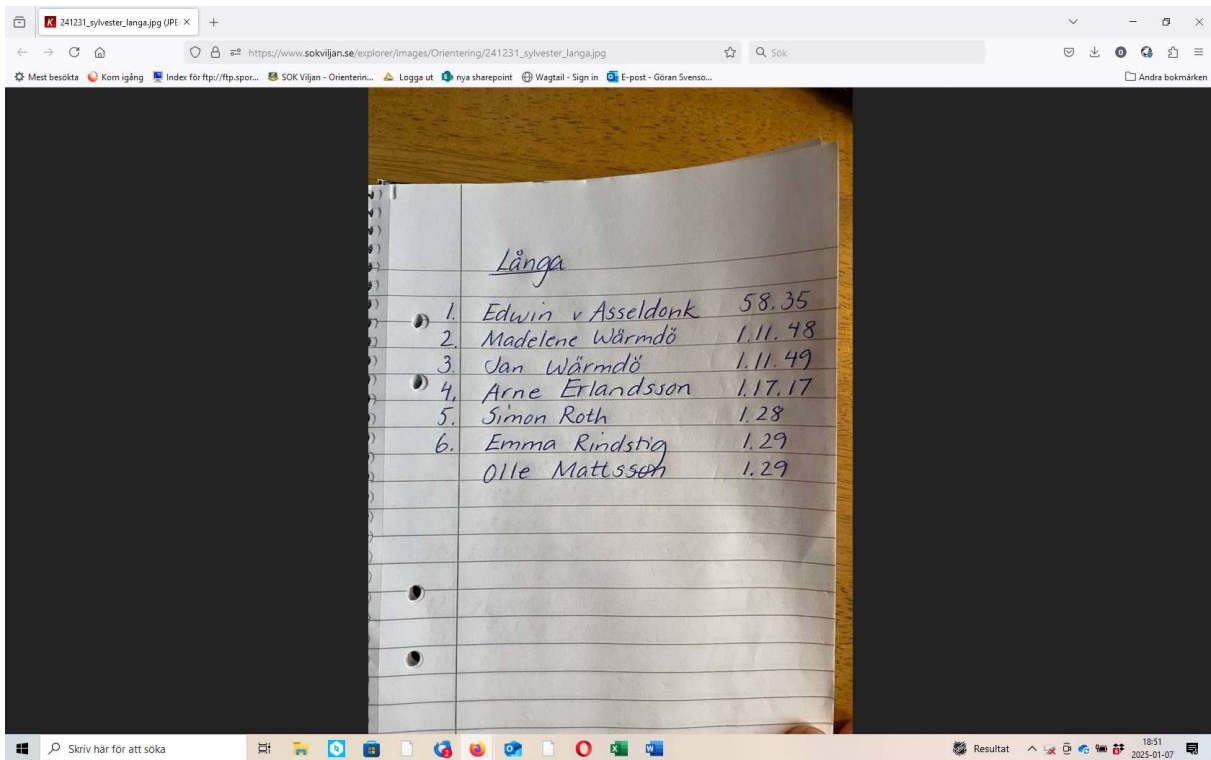 241231_sylvester_langa.jpg (JPE
https://www.sokviljan.se/explorer/images/Orientering/241231_sylvester_langa.jpg
Sök
Mest besökta Kom igång Index för ftp://ftp.spor... SOK Viljan - Orienterin... Logga ut nya sharepoint Wagtail - Sign in E-post - Göran Svenso... Andra bokmärken
Långa
1. Edwin v Asseldonk 58.35
2. Madelene Wärmdö 1.11.48
3. Jan Wärmdö 1.11.49
4. Arne Erlandsson 1.17.17
5. Simon Roth 1.28
6. Emma Rindstig 1.29
Olle Mattsson 1.29
Skriv här för att söka
Resultat
18:51
2025-01-07